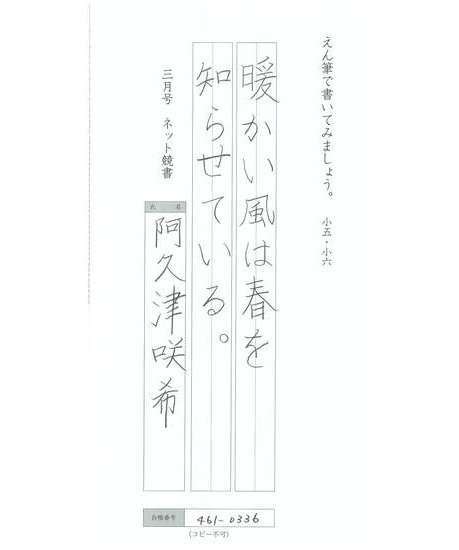 えん筆で書いてみましょう。 小五・小六
暖かい風は春を
知らせている。
三月号 ネット競書
氏名
阿久津咲希
台帳番号 461-0336
(コピー不可)